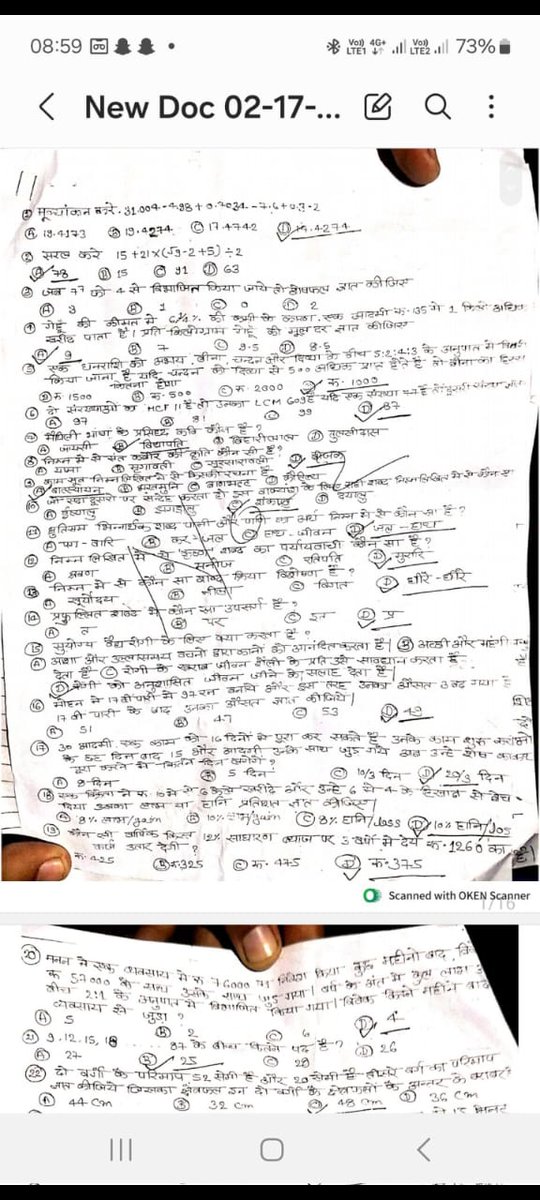 08:59
Vo)) LTE1 4G+ Vo)) LTE2 73%
New Doc 02-17-...
11
① मूल्यांकन करे. 31.004 - 4.98 + 0.7034 - 7.6 + 0.3 - 2
Ⓐ 19.4173 Ⓑ 19.4274 Ⓒ 17.4742 Ⓓ
② सरल करे 15 + 21 × (√9 - 2 + 5) ÷ 2
Ⓐ 78 Ⓑ 15 Ⓒ 91 Ⓓ 63
③ जब 77 को 4 से विभाजित किया जाये तो शेषफल ज्ञात कीजिए
Ⓐ 3 Ⓑ 1 Ⓒ 0 Ⓓ 2
④ गेहूँ की कीमत में की कमी के कारण, एक आदमी रु. 135 में 1 किग्रा अधिक
खरीद पाता है। प्रति किलोग्राम गेहूँ की मूल दर ज्ञात कीजिए
Ⓐ 9 Ⓑ 7 Ⓒ 9.5 Ⓓ 8.5
⑤ एक धनराशि को बीना, चन्दन और दिव्या के बीच 5:2:4:3 के अनुपात में
किया जाता है यदि चन्दन को दिव्या से 500 अधिक प्राप्त होते है तो बीना का हिस्सा
कितना होगा
Ⓐ रु. 1500 Ⓑ रु. 500 Ⓒ रु. 2000 Ⓓ रु. 1000
⑥ दो संख्याओं का HCF 11 है तो उनका LCM 609 है यदि एक संख्या 77 है तो दूसरी संख्या
Ⓐ 97 Ⓑ 81 Ⓒ 99 Ⓓ 87
⑦ मैथिली भाषा के प्रसिद्ध कवि कौन है ?
Ⓐ जायसी Ⓑ विद्यापति Ⓒ बिहारीलाल Ⓓ तुलसीदास
⑧ निम्न में से संत कबीर की कृति कौन सी है ?
Ⓐ Ⓑ मृगावती Ⓒ सूरसारावली Ⓓ बीजक
⑨ काम सूत्र निम्नलिखित में से किसकी रचना है
Ⓐ वात्स्यायन Ⓑ भरतमुनि Ⓒ बाणभट्ट Ⓓ कौटिल्य
⑩ जो सदा दूसरों पर संदेह करता हो इस वाक्यांश के लिए सही शब्द निम्नलिखित में से कौन सा
Ⓐ ईर्ष्यालु Ⓑ झगड़ालु Ⓒ शंकालु Ⓓ दयालु
⑪ श्रुतिसम भिन्नार्थक शब्द पानी और पाणि का अर्थ निम्न में से कौन सा है ?
Ⓐ पग - वारि Ⓑ कर - जल Ⓒ हाथ - जीवन Ⓓ जल - हाथ
⑫ निम्न लिखित में से शब्द का पर्यायवाची कौन सा है ?
Ⓐ श्रवण Ⓑ मनोज Ⓒ रतिपति Ⓓ मुरारि
⑬ निम्न में से कौन सा शब्द क्रिया विशेषण है ?
Ⓐ सूर्योदय Ⓑ नीला Ⓒ विगत Ⓓ धीरे - धीरे
⑭ प्रफुल्लित शब्द में कौन सा उपसर्ग है ?
Ⓐ त Ⓑ पर Ⓒ इत Ⓓ प्र
⑮ सुयोग्य वैद्य रोगी के लिए क्या करता है ?
Ⓐ आशा और उल्लासमय वचनो द्वारा कानो को आनंदित करता है। Ⓑ अच्छी और महंगी
देता है Ⓒ रोगी के खराब जीवन शैली के प्रति उसे सावधान करता है
Ⓓ रोगी को अनुशासित जीवन जीने की सलाह देता है।
⑯ मोहन ने 17 वी पारी में 97 रन बनाये और इस तरह उनका औसत 3 बढ़ गया है
17 वी पारी के बाद उनका औसत ज्ञात कीजिये।
Ⓐ 51 Ⓑ 47 Ⓒ 53 Ⓓ 49
⑰ 30 आदमी एक काम को 16 दिनो में पूरा कर सकते है उनके काम शुरू करने
के दिन बाद 15 और आदमी उनके साथ जुड़ गये अब उन्हे शेष काम
पूरा करने में कितने दिन लगेंगे ?
Ⓐ 8 दिन Ⓑ 5 दिन Ⓒ 10/3 दिन Ⓓ 20/3 दिन
⑱ एक विक्रेता ने रु. 10 में से 6 खरीदे और उन्हे 6 में 4 के हिसाब से बेच
दिया उसका लाभ या हानि प्रतिशत ज्ञात कीजिए।
Ⓐ 8% लाभ/gain Ⓑ 10% लाभ/gain Ⓒ 8% हानि/loss Ⓓ 10% हानि/los
⑲ कौन सी वार्षिक किस्त 12% साधारण ब्याज पर 3 वर्षो में देय रु. 1260 का
कर्ज उतार देगी ?
रु. 425 Ⓑ रु. 325 Ⓒ रु. 475 Ⓓ रु. 375
Scanned with OKEN Scanner
1/16
⑳ मनन ने एक व्यवसाय में रु 76000 का निवेश किया कुछ महीनो बाद,
रु 57000 के साथ उनके साथ जुड़ गया। वर्ष के अंत में कुल लाभ
बीच 2:1 के अनुपात में विभाजित किया गया। विवेक कितने महीने बाद
व्यवसाय से जुड़ा ?
Ⓐ 5 Ⓑ 2 Ⓒ 6 Ⓓ 4
㉑ 9, 12, 15, 18 ...... 87 के बीच कितने पद है ?
Ⓐ 27 Ⓑ 25 Ⓒ 28 Ⓓ 26
㉒ दो वर्गो के परिमाप 52 सेमी है और 20 सेमी है तीसरे वर्ग का परिमाप
ज्ञात कीजिये जिसका क्षेत्रफल इन दो वर्गो के क्षेत्रफलो के अन्तर के बराबर
Ⓐ 44 cm Ⓑ 32 cm Ⓒ 48 cm Ⓓ 36 cm